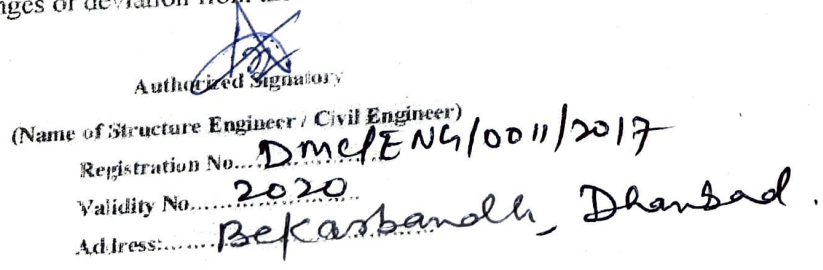 nges or deviation from
Authorized Signatory
(Name of Structure Engineer / Civil Engineer)
Registration No....DMC/ENG/0011/2017
Validity No......2020
Address:......Bekarbandh, Dhanbad.